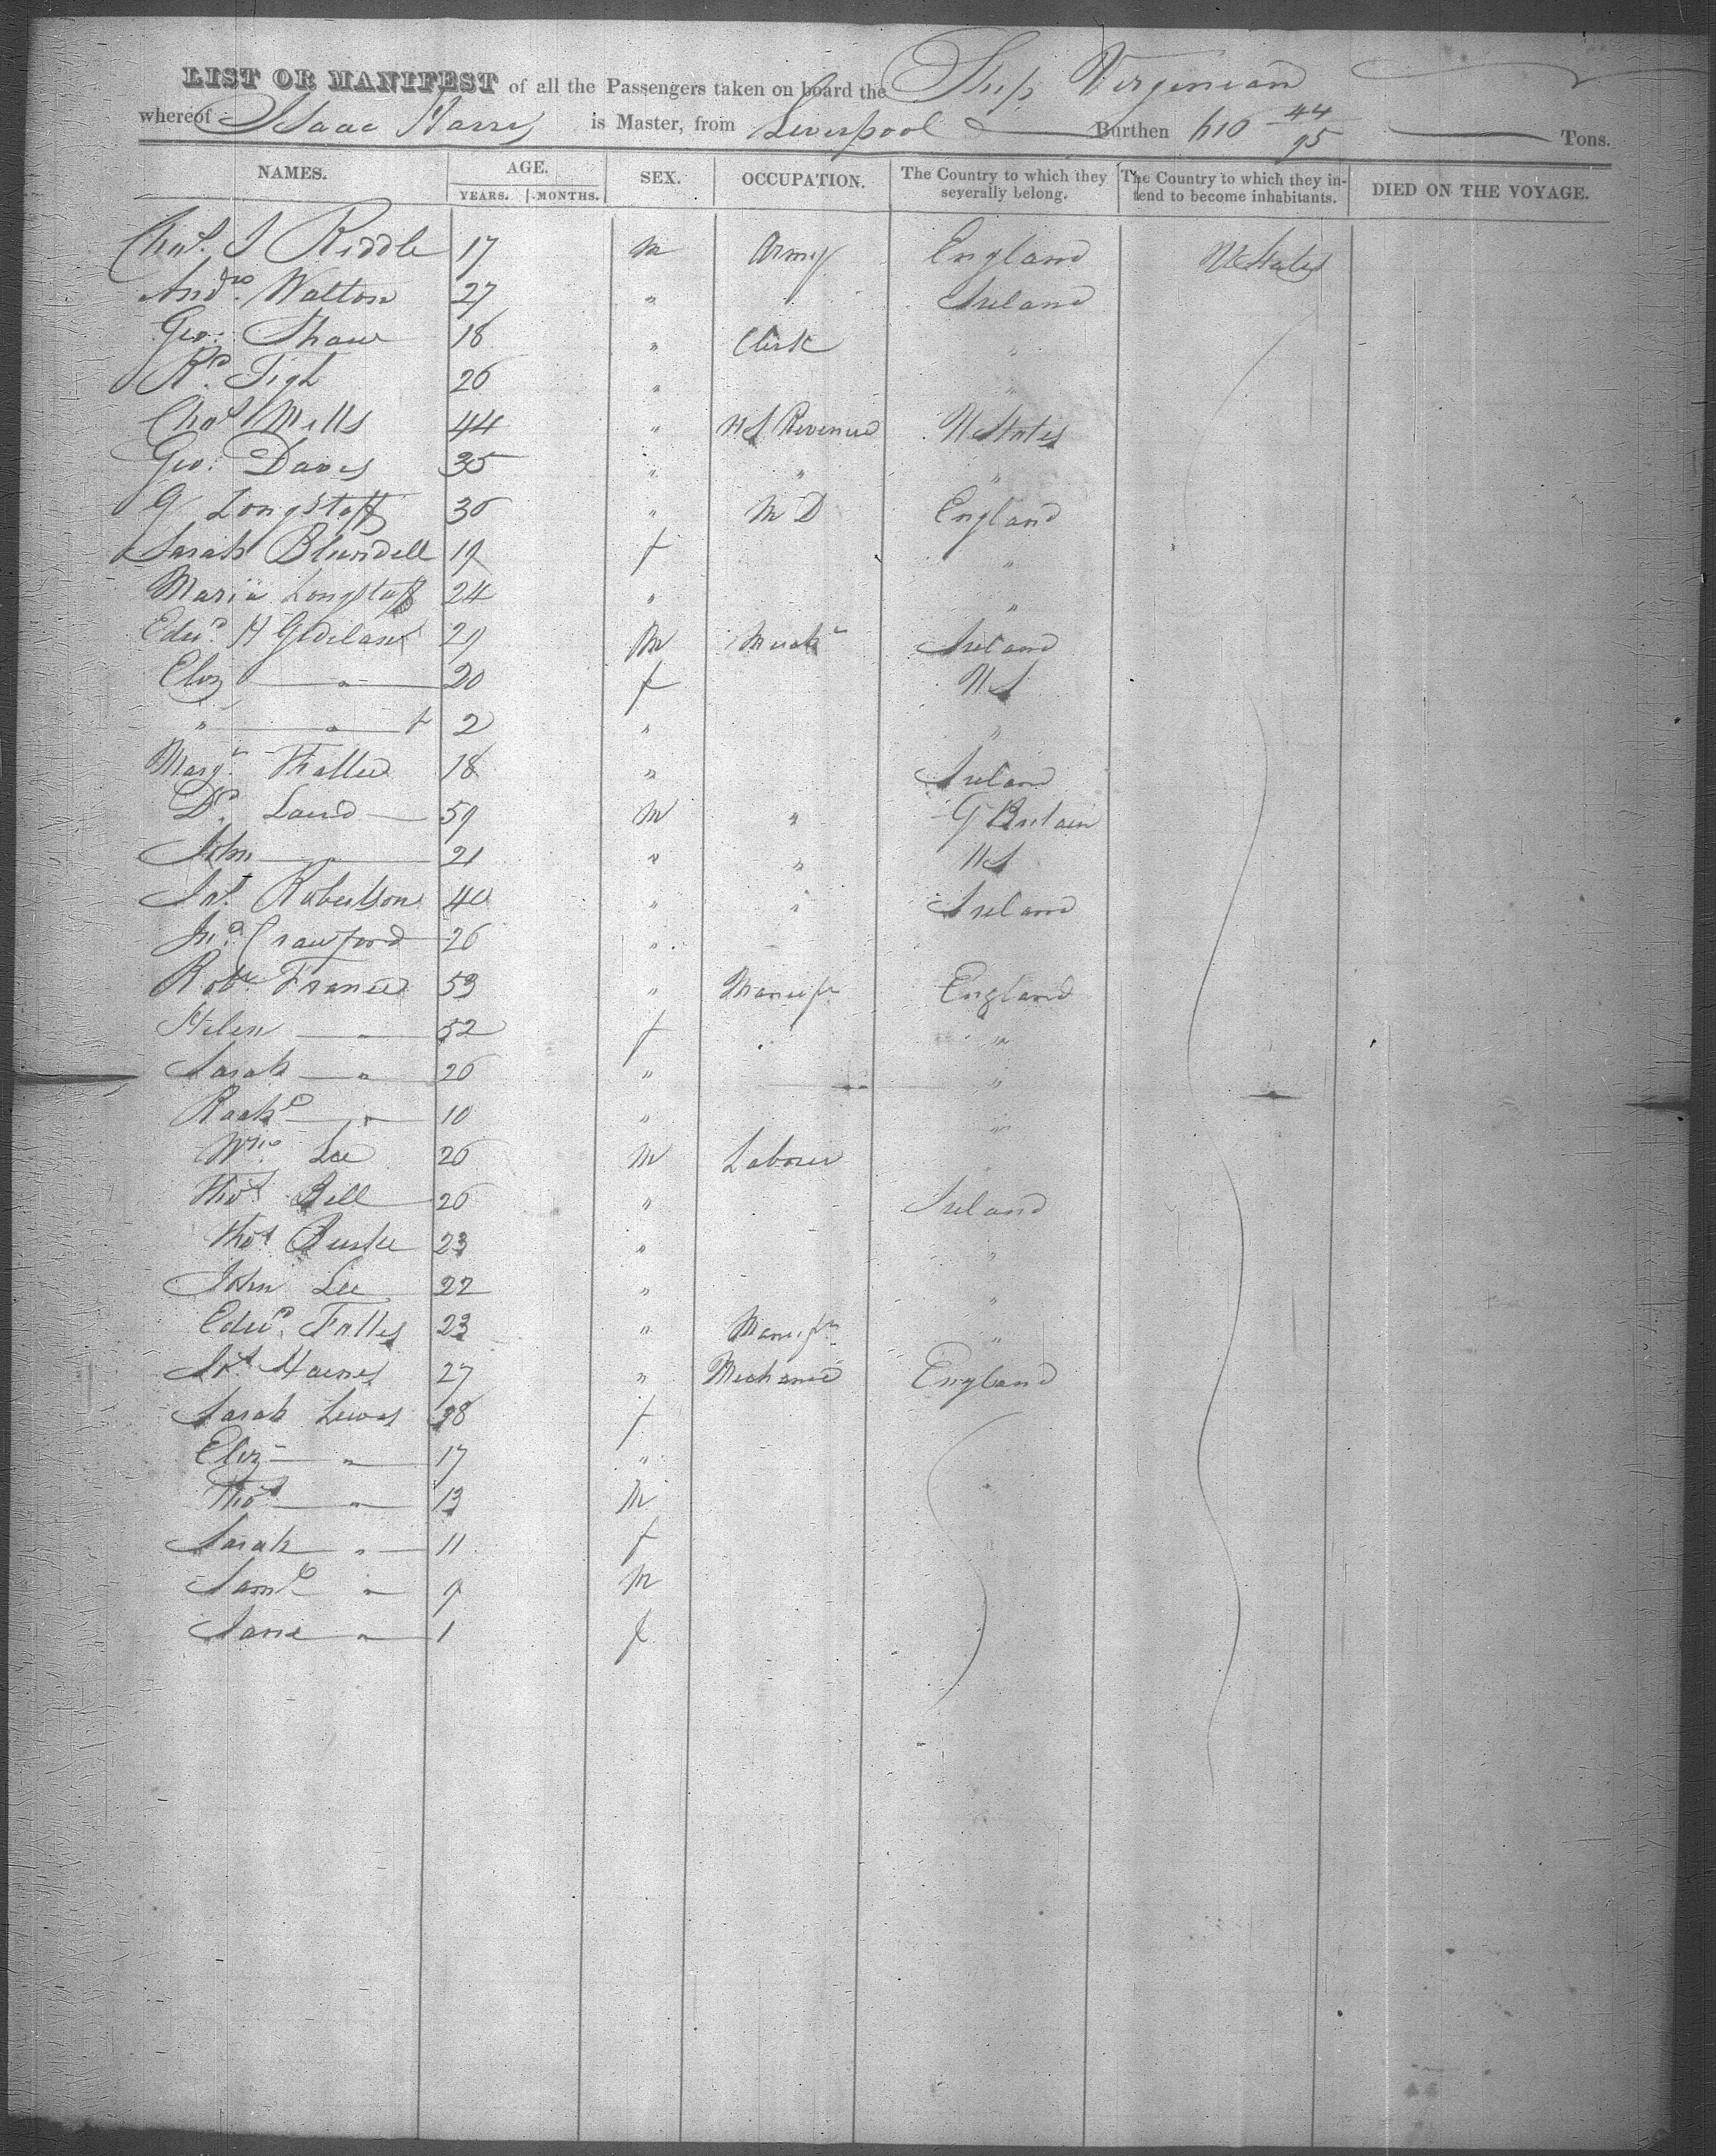 LIST OR MANIFEST of all the Passengers taken on board the Ship Virginian
whereof Isaac Harris is Master, from Liverpool Burthen 610 44/95 Tons.
NAMES. AGE. YEARS. MONTHS. SEX. OCCUPATION. The Country to which they severally belong. The Country to which they intend to become inhabitants. DIED ON THE VOYAGE.
Chas. J Riddle 17 M Army England UStates
Andw. Walton 27 " Ireland
Geo. Shaw 18 " Clerk "
Rd. Tigh 26 " "
Chas Mills 44 " US Revenue UStates
Geo. Davis 35 " " "
G Longstaff 36 " M D England
Sarah Blundell 19 f "
Maria Longstaff 24 " "
Edwd. H 29 M Mercht Ireland
Eliz " 20 f US
" " 2 " "
Margt. 18 " Ireland
Dd. Laird 59 M " G Britain
John 21 " " US
Jas. Robertson 40 " " Ireland
Jno. Crawford 26 "
Robt. France 53 " Manufr England
Helen " 52 f "
Sarah " 26 " "
Rachl " 10 " "
Wm. Lee 26 M Laborer
Thos Bell 26 " Ireland
Thos Burke 23 " "
John Lee 22 " "
Edwd. Falles 23 " Manufr "
Haines 27 " Mechanic England
Sarah Lewas 38 f
Eliz " 17 "
Thos " 13 M
Sarah " 11 f
Saml " 9 M
Jane " 1 f